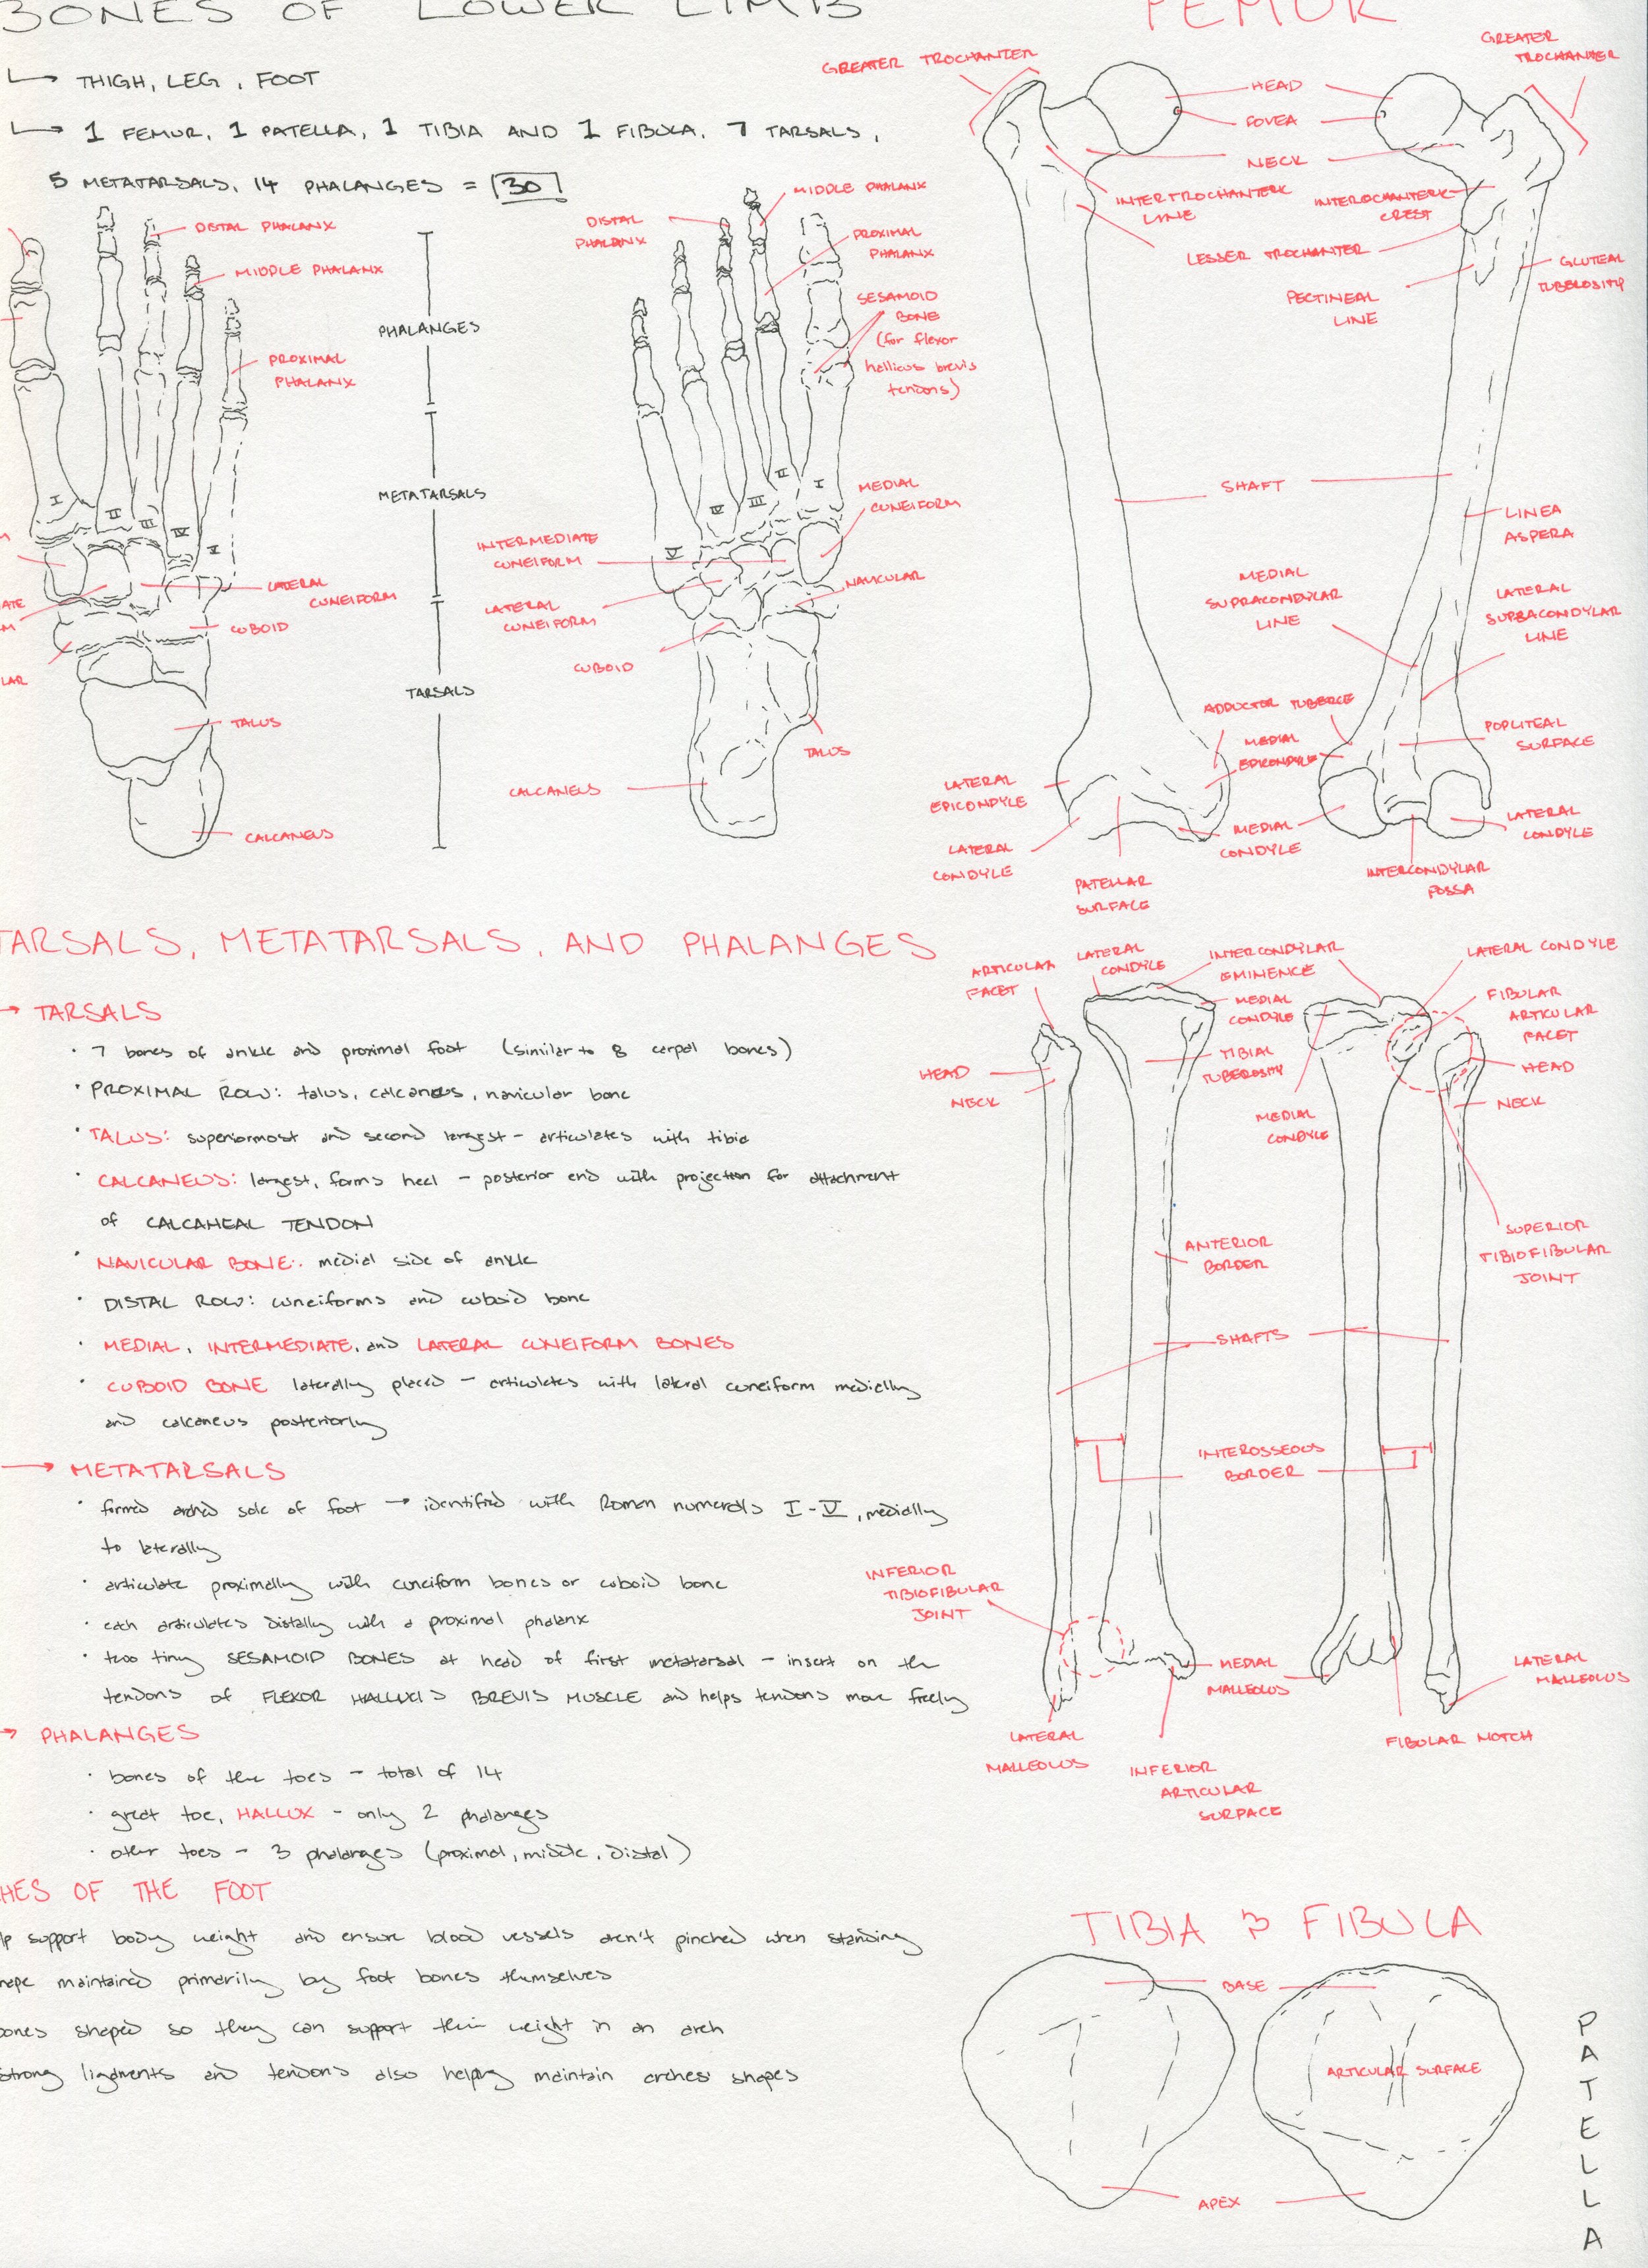 BONES OF LOWER LIMB
THIGH, LEG, FOOT
1 FEMUR, 1 PATELLA, 1 TIBIA AND 1 FIBULA, 7 TARSALS,
5 METATARSALS, 14 PHALANGES = 30
DISTAL PHALANX
MIDDLE PHALANX
PROXIMAL
PHALANX
I
II
III
IV
I
LATERAL
CUNEIFORM
CUBOID
ATE
M
LAR
TALUS
CALCANEUS
PHALANGES
METATARSALS
TARSALS
DISTAL
PHALANX
MIDDLE PHALANX
PROXIMAL
PHALANX
SESAMOID
BONE
(for flexor
hallicus brevis
tendons)
I
II
III
IV
V
MEDIAL
CUNEIFORM
INTERMEDIATE
CUNEIFORM
NAVICULAR
LATERAL
CUNEIFORM
CUBOID
TALUS
CALCANEUS
FEMUR
GREATER TROCHANTER
GREATER
TROCHANTER
HEAD
FOVEA
NECK
INTERTROCHANTERIC
LINE
INTEROCHANTERIC
CREST
LESSER TROCHANTER
PECTINEAL
LINE
GLUTEAL
TUBEROSITY
SHAFT
LINEA
ASPERA
MEDIAL
SUPRACONDYLAR
LINE
LATERAL
SUPRACONDYLAR
LINE
ADDUCTOR TUBERCE
MEDIAL
EPICONDYLE
POPLITEAL
SURFACE
LATERAL
EPICONDYLE
LATERAL
CONDYLE
PATELLAR
SURFACE
MEDIAL
CONDYLE
LATERAL
CONDYLE
INTERCONDYLAR
FOSSA
TARSALS, METATARSALS, AND PHALANGES
→ TARSALS
• 7 bones of ankle and proximal foot (similar to 8 carpal bones)
• PROXIMAL ROW: talus, calcaneus, navicular bone
• TALUS: superiormost and second largest - articulates with tibia
• CALCANEUS: largest, forms heel - posterior end with projection for attachment
of CALCANEAL TENDON
• NAVICULAR BONE: medial side of ankle
• DISTAL ROW: cuneiforms and cuboid bone
• MEDIAL, INTERMEDIATE, and LATERAL CUNEIFORM BONES
• CUBOID BONE laterally placed - articulates with lateral cuneiform medially
and calcaneus posteriorly
→ METATARSALS
• formed arched sole of foot → identified with Roman numerals I-V, medially
to laterally
• articulate proximally with cuneiform bones or cuboid bone
• each articulates distally with a proximal phalanx
• two tiny SESAMOID BONES at head of first metatarsal - insert on the
tendons of FLEXOR HALLUCIS BREVIS MUSCLE and helps tendons move freely
→ PHALANGES
• bones of the toes - total of 14
• great toe, HALLUX - only 2 phalanges
• other toes - 3 phalanges (proximal, middle, distal)
HES OF THE FOOT
lp support body weight and ensure blood vessels aren't pinched when standing
hape maintained primarily by foot bones themselves
bones shaped so they can support their weight in an arch
strong ligaments and tendons also helping maintain arches' shapes
ARTICULAR
FACET
LATERAL
CONDYLE
INTERCONDYLAR
EMINENCE
LATERAL CONDYLE
MEDIAL
CONDYLE
FIBULAR
ARTICULAR
FACET
HEAD
NECK
TIBIAL
TUBEROSITY
HEAD
NECK
MEDIAL
CONDYLE
SUPERIOR
TIBIOFIBULAR
JOINT
ANTERIOR
BORDER
SHAFTS
INTEROSSEOUS
BORDER
INFERIOR
TIBIOFIBULAR
JOINT
MEDIAL
MALLEOLUS
LATERAL
MALLEOLUS
LATERAL
MALLEOLUS
INFERIOR
ARTICULAR
SURFACE
FIBULAR NOTCH
TIBIA & FIBULA
BASE
ARTICULAR SURFACE
APEX
PATELLA